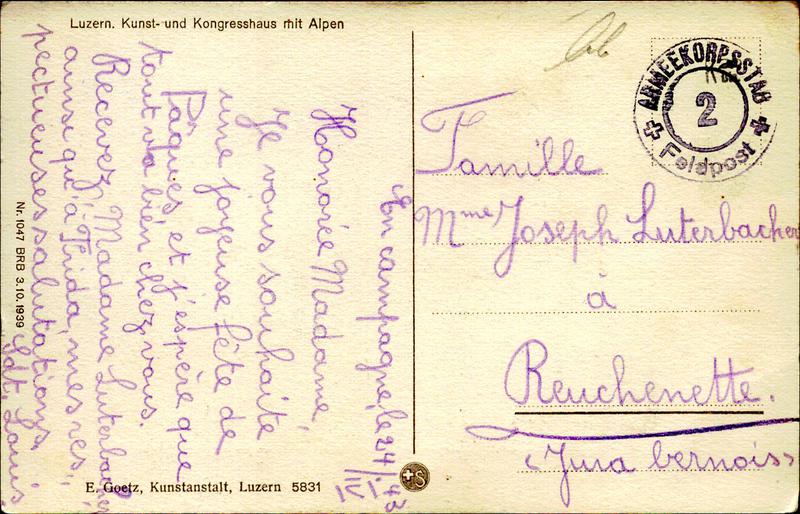 Luzern. Kunst- und Kongresshaus mit Alpen
En campagne, le 24/IV.43
Honorée Madame,
Je vous souhaite
une joyeuse fête de
Pâques et j'espère que
tout va bien chez vous.
Recevez, Madame Luterbacher,
ainsi qu'à Frida, mes res-
pectueuses salutations
Sdt. Louis
Nr. 1047 BRB 3.10.1939
E. Goetz, Kunstanstalt, Luzern 5831
S
ARMEEKORPSSTAB
2
Feldpost
Famille
Mme Joseph Luterbacher
à
Reuchenette.
(Jura bernois)